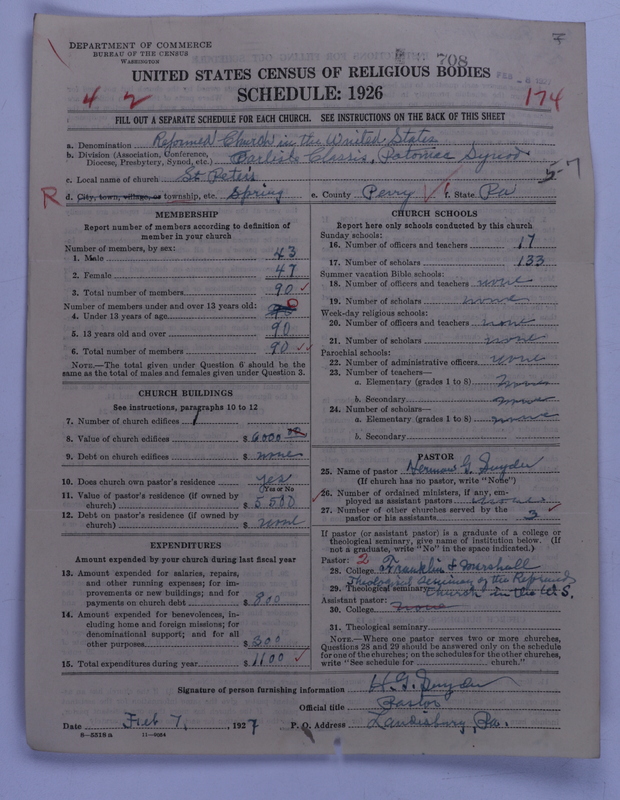 DEPARTMENT OF COMMERCE
BUREAU OF THE CENSUS
WASHINGTON
708
UNITED STATES CENSUS OF RELIGIOUS BODIES
SCHEDULE: 1926
4 2
174
FILL OUT A SEPARATE SCHEDULE FOR EACH CHURCH. SEE INSTRUCTIONS ON THE BACK OF THIS SHEET
a. Denomination Reformed Church in the United States
b. Division (Association, Conference, Diocese, Presbytery, Synod, etc.) Carlisle Classis, Potomac Synod
5-7
c. Local name of church St Peter's
R d. City, town, village, or township, etc. Spring e. County Perry f. State Pa
MEMBERSHIP
Report number of members according to definition of
member in your church
Number of members, by sex:
1. Male 43
2. Female 47
3. Total number of members 90
Number of members under and over 13 years old:
4. Under 13 years of age 0
5. 13 years old and over 90
6. Total number of members 90
NOTE.—The total given under Question 6 should be
the same as the total of males and females given under Question 3.
CHURCH BUILDINGS
See instructions, paragraphs 10 to 12
7. Number of church edifices 1
8. Value of church edifices $ 6000 00
9. Debt on church edifices $ none
10. Does church own pastor's residence yes
(Yes or No)
11. Value of pastor's residence (if owned by
church) $ 5500
12. Debt on pastor's residence (if owned by
church) $ none
EXPENDITURES
Amount expended by your church during last fiscal year
13. Amount expended for salaries, repairs,
and other running expenses; for im-
provements or new buildings; and for
payments on church debt $ 800
14. Amount expended for benevolences, in-
cluding home and foreign missions; for
denominational support; and for all
other purposes $ 300
15. Total expenditures during year $ 1100
CHURCH SCHOOLS
Report here only schools conducted by this church
Sunday schools:
16. Number of officers and teachers 17
17. Number of scholars 133
Summer vacation Bible schools:
18. Number of officers and teachers none
19. Number of scholars none
Week-day religious schools:
20. Number of officers and teachers none
21. Number of scholars none
Parochial schools:
22. Number of administrative officers none
23. Number of teachers—
a. Elementary (grades 1 to 8) none
b. Secondary none
24. Number of scholars—
a. Elementary (grades 1 to 8) none
b. Secondary
PASTOR
25. Name of pastor Herman G. Snyder
(If church has no pastor, write "None")
26. Number of ordained ministers, if any, em-
ployed as assistant pastors none
27. Number of other churches served by the
pastor or his assistants 3
If pastor (or assistant pastor) is a graduate of a college or
theological seminary, give name of institution below. (If
not a graduate, write "No" in the space indicated.)
Pastor: 2
28. College Franklin & Marshall
29. Theological seminary Theological Seminary of the Reformed
Church in the U.S.
Assistant pastor:
30. College none
31. Theological seminary
NOTE.—Where one pastor serves two or more churches,
Questions 28 and 29 should be answered only on the schedule
for one of the churches; on the schedules for the other churches,
write "See schedule for church."
Signature of person furnishing information H. G. Snyder
Official title Pastor
Date Feb 7, 1927 P. O. Address Landisburg, Pa.
8—5318a 11—9034